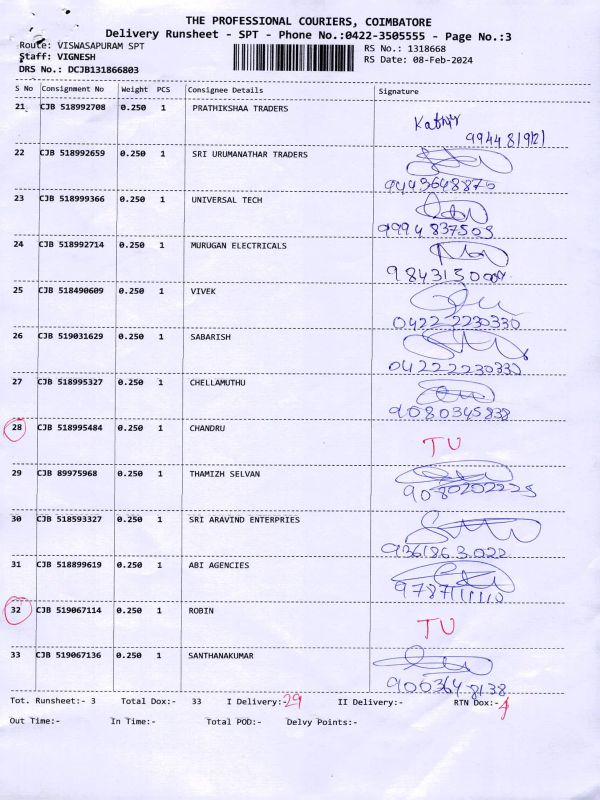 THE PROFESSIONAL COURIERS, COIMBATORE
Delivery Runsheet - SPT - Phone No.:0422-3505555 - Page No.:3
Route: VISWASAPURAM SPT RS No.: 1318668
Staff: VIGNESH RS Date: 08-Feb-2024
DRS No.: DCJB131866803
S No Consignment No Weight PCS Consignee Details Signature
21 CJB 518992708 0.250 1 PRATHIKSHAA TRADERS
Kathir
22 CJB 518992659 0.250 1 SRI URUMANATHAR TRADERS
9443648876
23 CJB 518999366 0.250 1 UNIVERSAL TECH
9994837503
24 CJB 518992714 0.250 1 MURUGAN ELECTRICALS
25 CJB 518490609 0.250 1 VIVEK
0422 2230330
26 CJB 519031629 0.250 1 SABARISH
04222230330
27 CJB 518995327 0.250 1 CHELLAMUTHU
9080345838
28 CJB 518995484 0.250 1 CHANDRU
TU
29 CJB 89975968 0.250 1 THAMIZH SELVAN
9080202225
30 CJB 518593327 0.250 1 SRI ARAVIND ENTERPRIES
9361863022
31 CJB 518899619 0.250 1 ABI AGENCIES
32 CJB 519067114 0.250 1 ROBIN
TU
33 CJB 519067136 0.250 1 SANTHANAKUMAR
9003648138
Tot. Runsheet:- 3 Total Dox:- 33 I Delivery:-29 II Delivery:- RTN Dox:-4
Out Time:- In Time:- Total POD:- Delvy Points:-